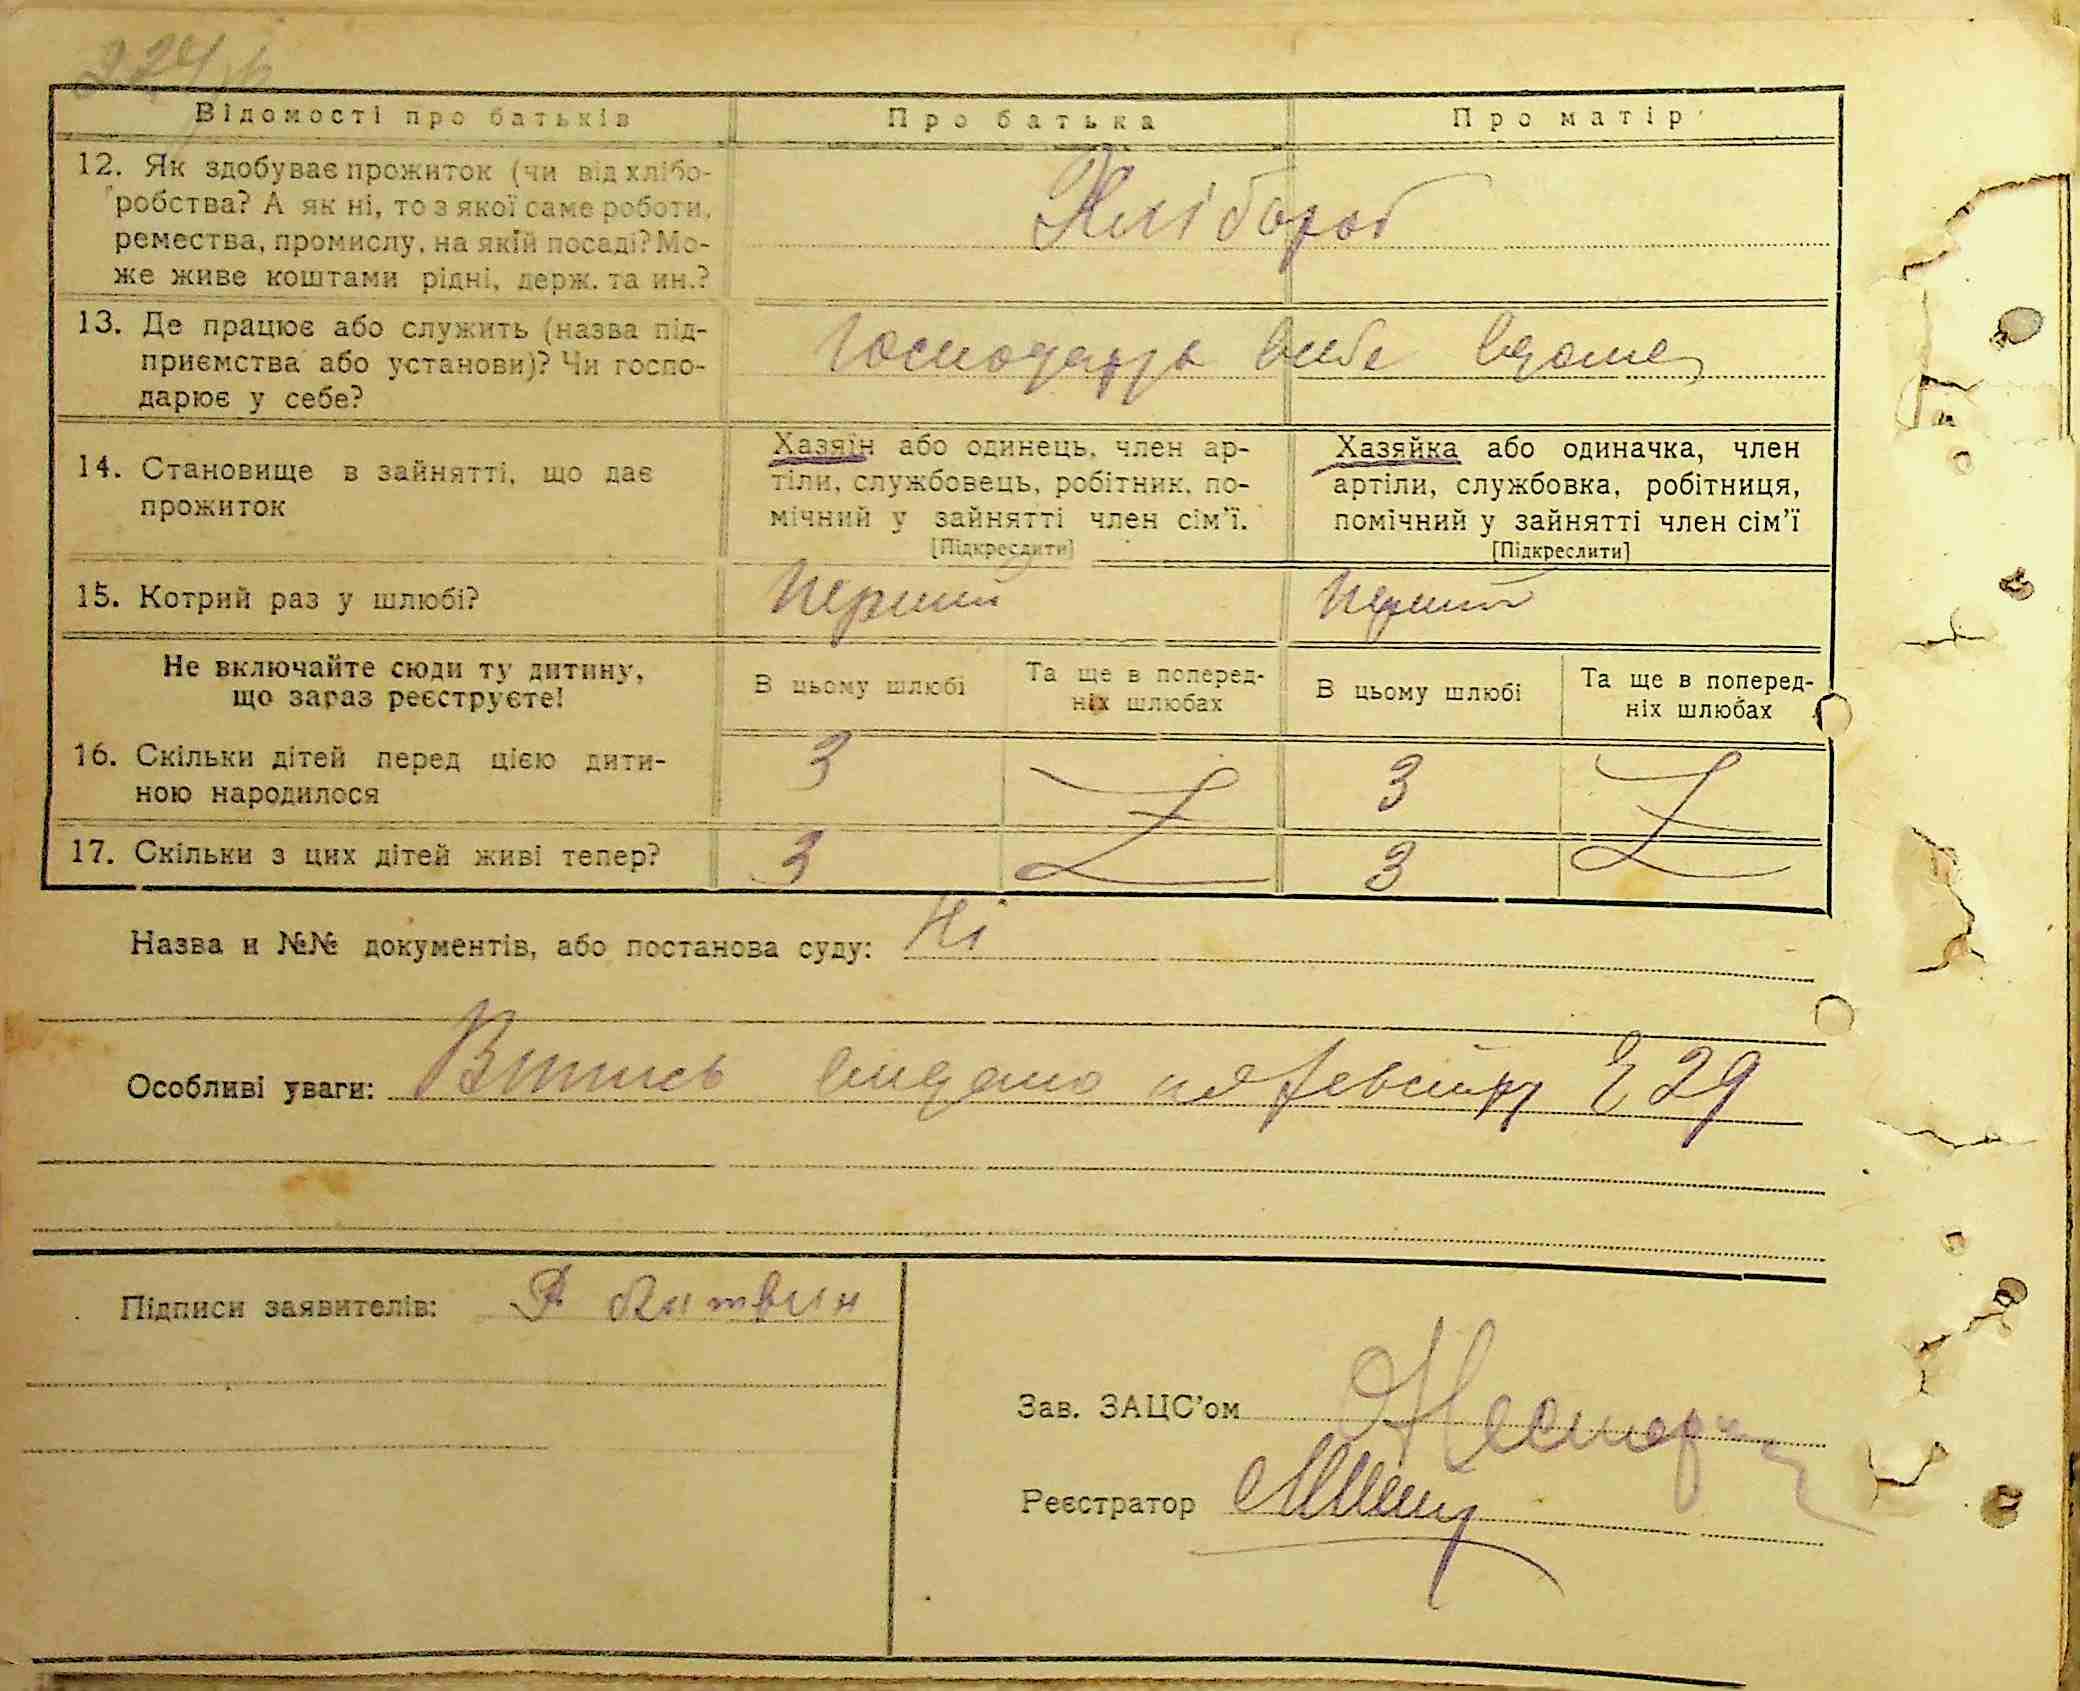 Відомості про батьків Про батька Про матір
12. Як здобуває прожиток (чи від хлібо-
робства? А як ні, то з якої саме роботи,
ремества, промислу, на якій посаді? Мо-
же живе коштами рідні, держ. та ин.?
Хлібороб
13. Де працює або служить (назва під-
приємства або установи)? Чи госпо-
дарює у себе?
Господарує в себе вдома
14. Становище в зайнятті, що дає
прожиток
Хазяїн або одинець, член ар-
тіли, службовець, робітник, по-
мічний у зайнятті член сім'ї.
[Підкреслити]
Хазяйка або одиначка, член
артіли, службовка, робітниця,
помічний у зайнятті член сім'ї
[Підкреслити]
15. Котрий раз у шлюбі? Перший Перший
Не включайте сюди ту дитину,
що зараз реєструєте!
В цьому шлюбі
Та ще в поперед-
ніх шлюбах
В цьому шлюбі
Та ще в поперед-
ніх шлюбах
16. Скільки дітей перед цією дити-
ною народилося
3 3
17. Скільки з цих дітей живі тепер? 3 3
Назва и №№ документів, або постанова суду: Ні
Особливі уваги: Випись видано 29
Підписи заявителів: Литвин
Зав. ЗАЦС'ом
Реєстратор